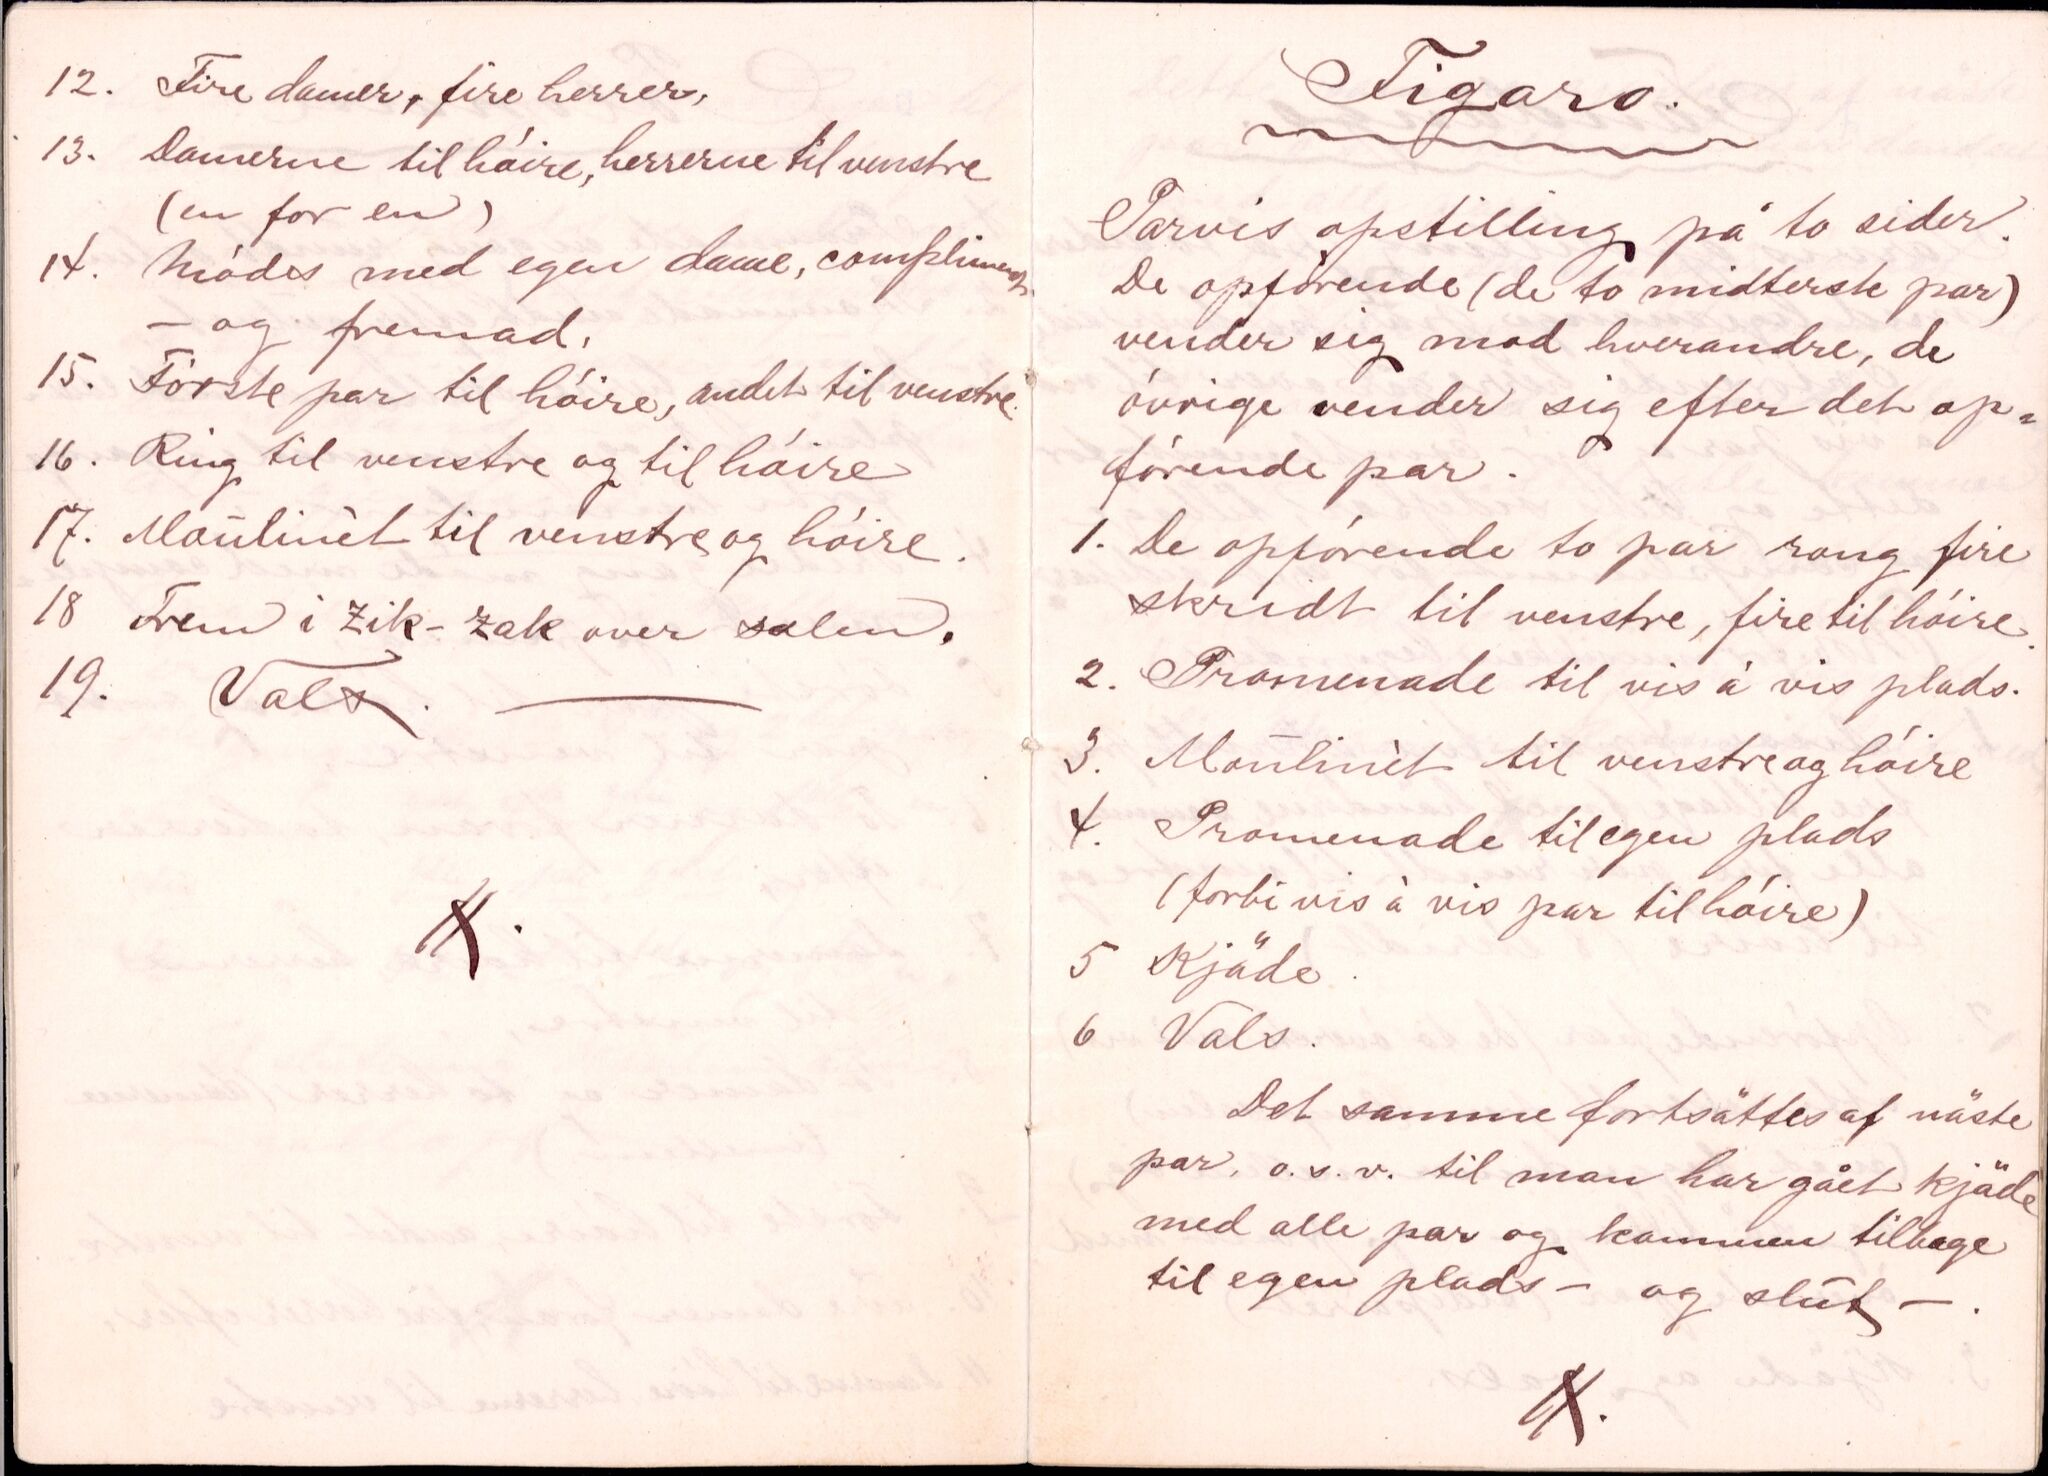 12. Fire damer, fire herrer,
13. Damerne til höire, herrerne til venstre
(en for en)
14. Mödes med egen dame, compliment
– og fremad.
15. Förste par til höire, andet til venstre.
16. Ring til venstre og til höire
17. Moulinèt til venstre og höire.
18 Frem i zik-zak over salen.
19. Vals.
Figaro.
Parvis opstilling på to sider.
De opförende (de to midterste par)
vender sig mod hverandre, de
óvrige vender sig efter det op=
förende par.
1. De opförende to par rong fire
skridt til venstre, fire til höire.
2. Promenade til vis à vis plads.
3. Moulinèt til venstre og höire
4. Promenade til egen plads
(forbi vis à vis par til höire)
5 Kjäde.
6 Vals.
Det samme fortsättes af näste
par, o.s.v. til man har gået kjäde
med alle par og kommen tilbage
til egen plads – og slut –.